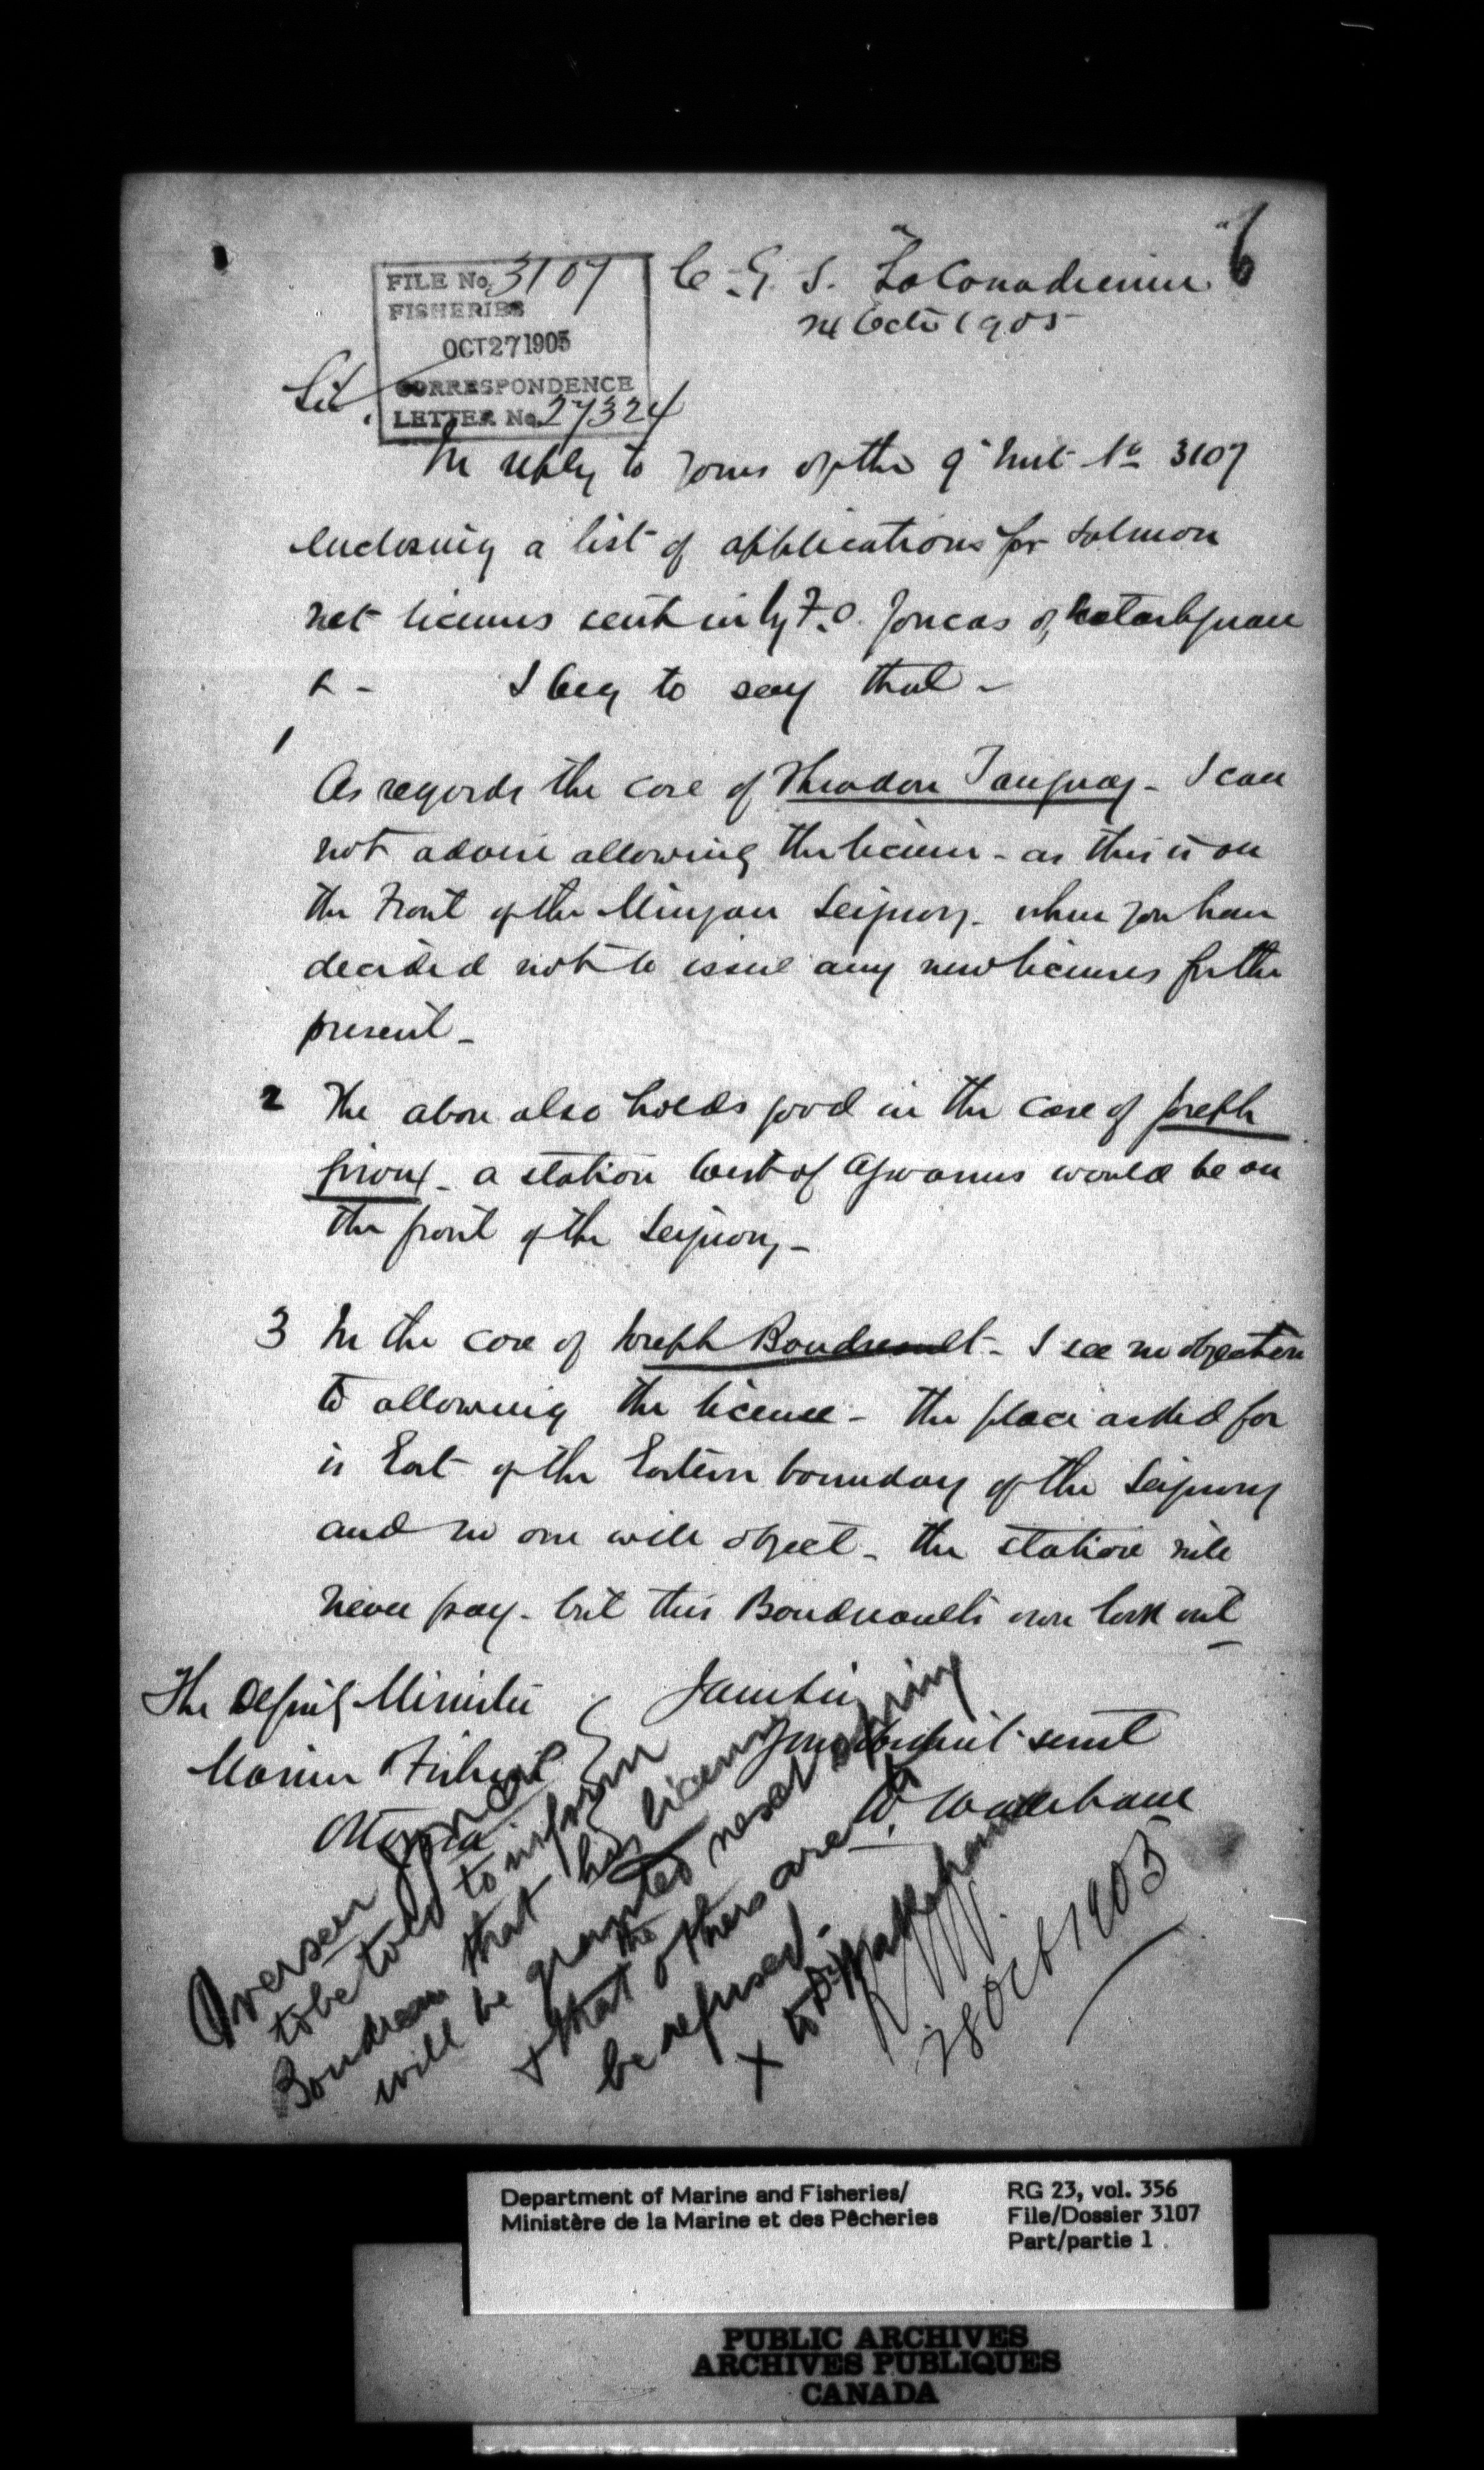 6
C.G.S. La Canadienne
24 Octo 1905
FILE No. 3107
FISHERIES
OCT 27 1905
CORRESPONDENCE
LETTER No. 27324
Sir,
In reply to yours of the 9th Inst No 3107
enclosing a list of applications for salmon
net licenses sent in by F.O. Joncas of Natashquan
& - I beg to say that -
1
As regards the case of Theodore Tanguay - I can
not advise allowing the license - as this is on
the Front of the Mingan Seigniory - where you have
decided not to issue any new licenses for the
present -
2 The above also holds good in the case of Joseph
Giroux - a station West of Agwanus would be on
the front of the Seigniory -
3 In the case of Joseph Boudreault - I see no objection
to allowing the license - the place asked for
is East of the Eastern boundary of the Seigniory
and no one will object - the station will
never pay - but this Boudreault's own look out
I am Sir
Your Obedient servt
W. Wakeham
The Deputy Minister
Marine & Fisheries
Ottawa
Overseer Joncas
to be told to inform
Boudreau that his license
will be granted next spring
& that the others are to
be refused.
x to Dr Wakeham
28 Oct 1905
Department of Marine and Fisheries/
Ministère de la Marine et des Pêcheries
RG 23, vol. 356
File/Dossier 3107
Part/partie 1
PUBLIC ARCHIVES
ARCHIVES PUBLIQUES
CANADA